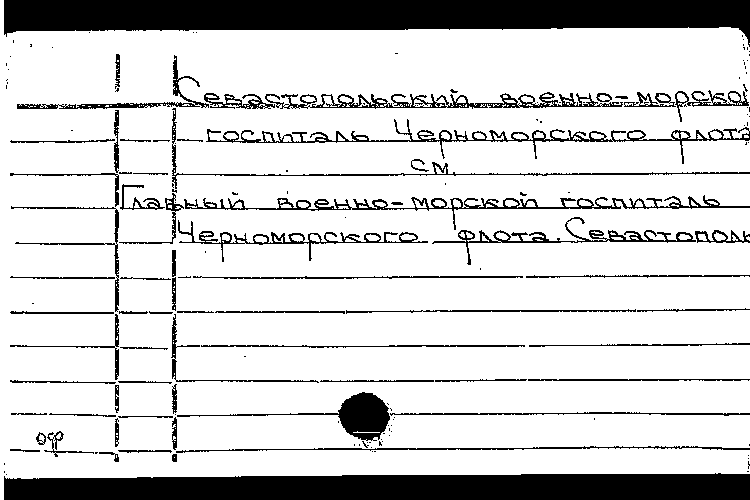 Севастопольский военно-морско
госпиталь Черноморского флота
см.
Главный военно-морской госпиталь
Черноморского флота. Севастополь
оф